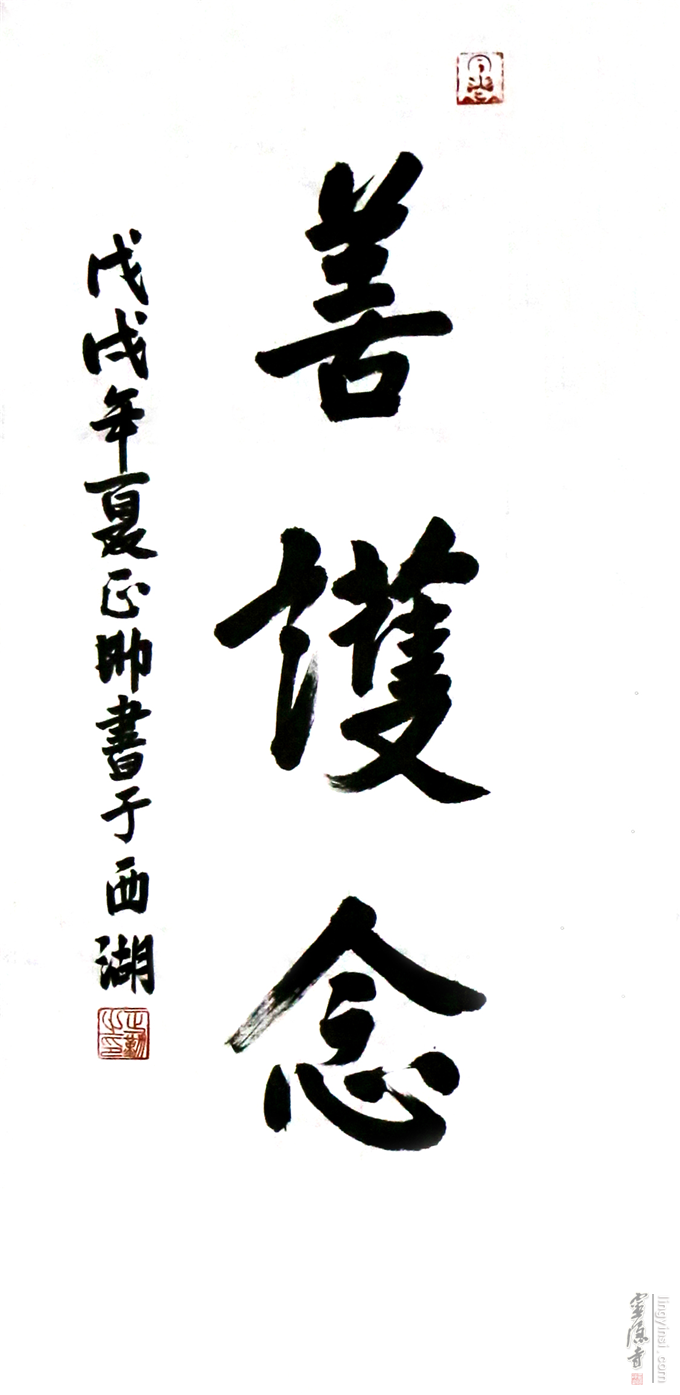 善護念
戊戌年夏正勤書于西湖
靈隱寺
lingyinsi.com